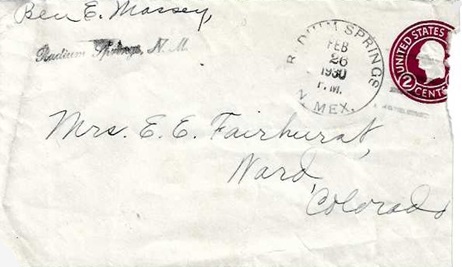 Ben E. Massey,
Radium Springs, N.M.
RADIUM SPRINGS
FEB
26
1930
P.M.
N. MEX.
UNITED STATES
2 CENTS
Mrs. E. E. Fairhurst,
Ward,
Colorado